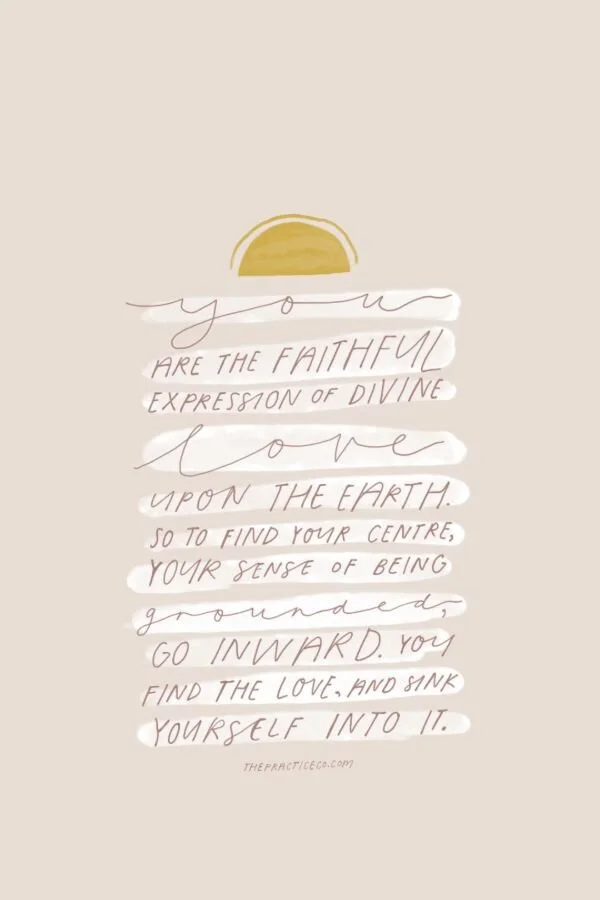 you
ARE THE FAITHFUL
EXPRESSION OF DIVINE
love
UPON THE EARTH.
SO TO FIND YOUR CENTRE,
YOUR SENSE OF BEING
grounded,
GO INWARD. YOU
FIND THE LOVE, AND SINK
YOURSELF INTO IT.
THEPRACTICECO.COM